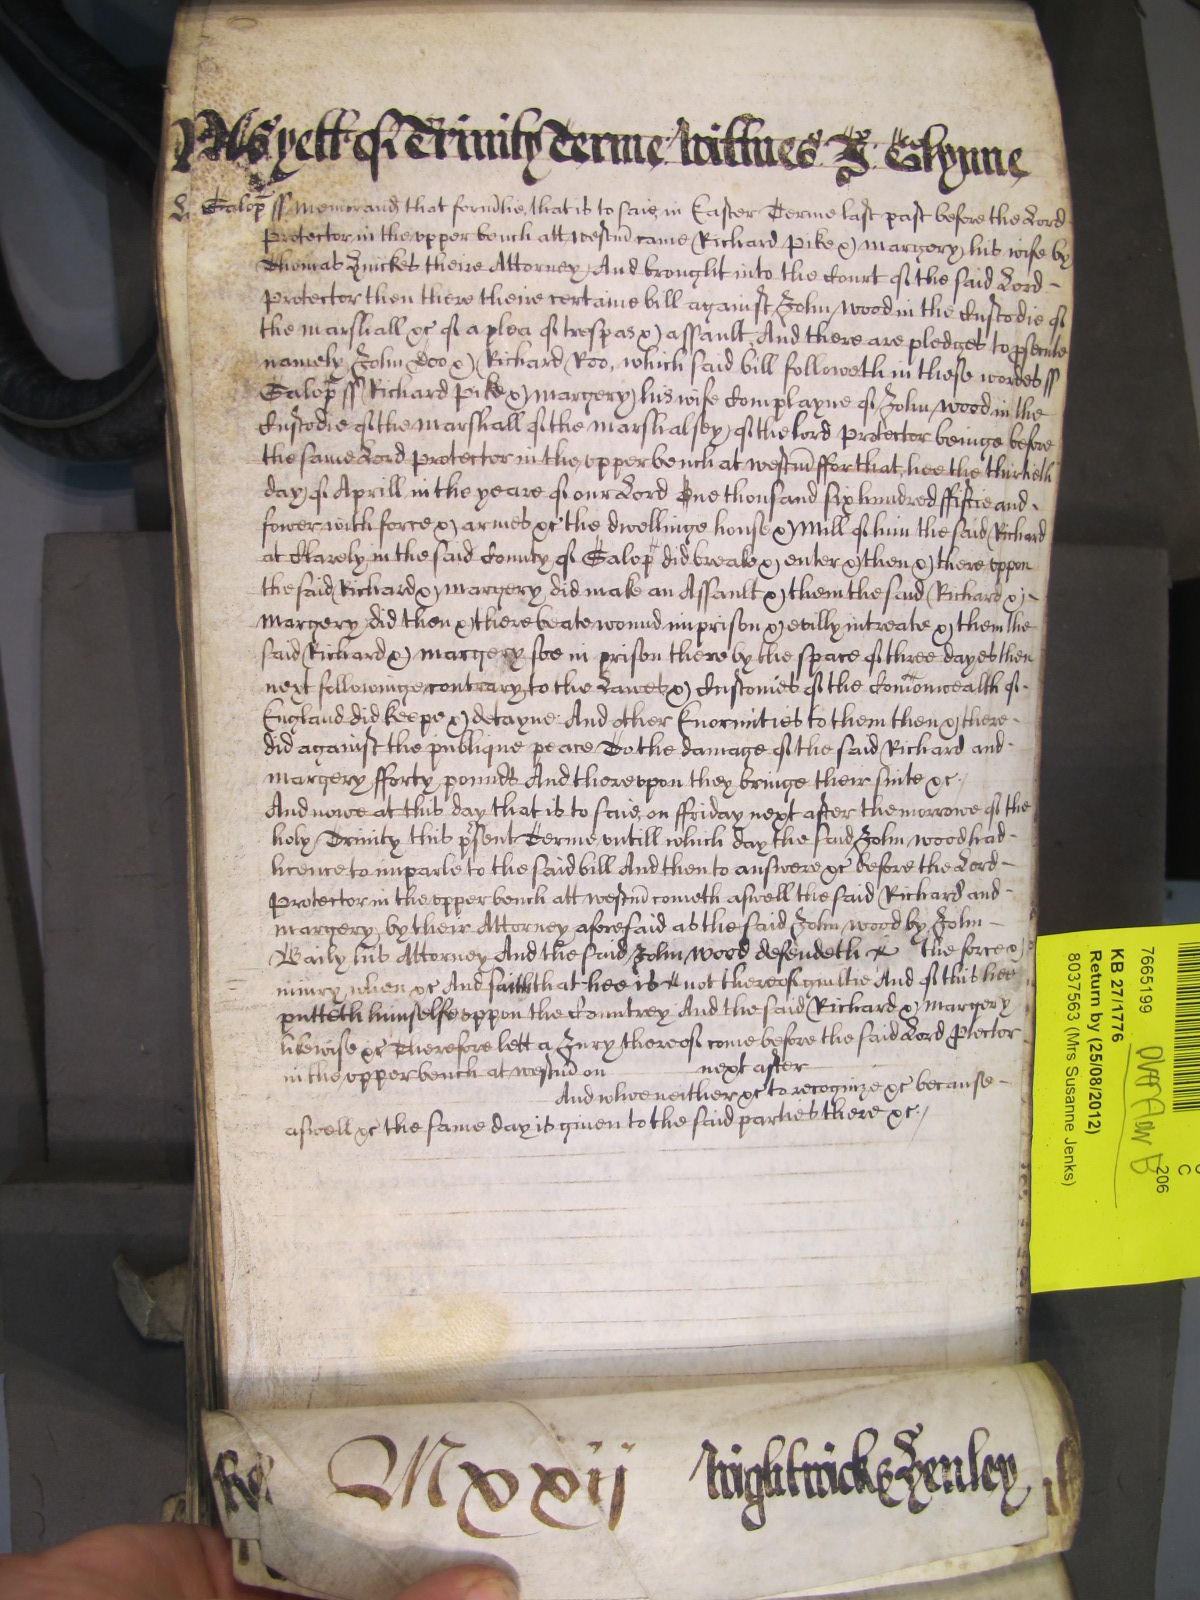 As yett of Trinity Terme Wittnes J Glynne
Salop ss Memorand that formlie, that is to saie, in Easter Terme last past before the Lord
Protector in the upper bench att Westm came Richard Pike & Margery his wife by
Thomas Zinckes theire Attorney, And brought into the Court of the said Lord -
Protector then there theire certaine bill against John Wood in the Custodie of
the marshall &c of a plea of trespas & assault, And there are pledges to psecute
namely John Doo & Richard Roo, which said bill followeth in these wordes ss
Salop ss Richard Pike & Margery his wife Complayne of John Wood in the
Custodie of the Marshall of the Marshalsey of the lord Protector beinge before
the same Lord Protector in the upper bench at Westm ffor that, hee the thirtieth
day of Aprill in the yeare of our Lord One thousand six hundred ffiftie and -
fower with force & armes &c the dwellinge house & Mill of him the said Richard
at in the said County of Salop did breake & enter & then & there uppon
the said Richard & Margery did make an Assault & them the said Richard & -
Margery did then & there beate wound imprison & evilly intreate & them the
said Richard & Margery soe in prison there by the space of three dayes then
next followinge contrary to the Lawes & Customes of the Comonwealth of -
England did keepe & detayne: And other Enormities to them then & there -
did against the publique peace To the damage of the said Richard and -
Margery fforty pounds And thereupon they bringe their suite &c./
And nowe at this day that is to saie, on ffriday next after the morrowe of the
holy Trinity this psent Terme untill which day the said John Wood had -
licence to imparle to the said bill And then to answere &c before the Lord -
Protector in the upper bench att Westm cometh aswell the said Richard and -
Margery by their Attorney aforesaid as the said John Wood by John -
Baily his Attorney And the said John Wood defendeth the force &
iniury when &c And saith that hee is not thereof guiltie And of this hee
putteth himselfe uppon the Countrey And the said Richard & Margery
likewise &c Therefore lett a Jury thereof come before the said Lord Ptector
in the upper bench at Westm on next after
And whoe neither &c to recognize &c because -
aswell &c the same day is given to the said parties there &c:/
Mxxij Wightwicke & Henley
7665199
KB 27/1776
Return by (25/08/2012)
8037563 (Mrs Susanne Jenks)
206
C